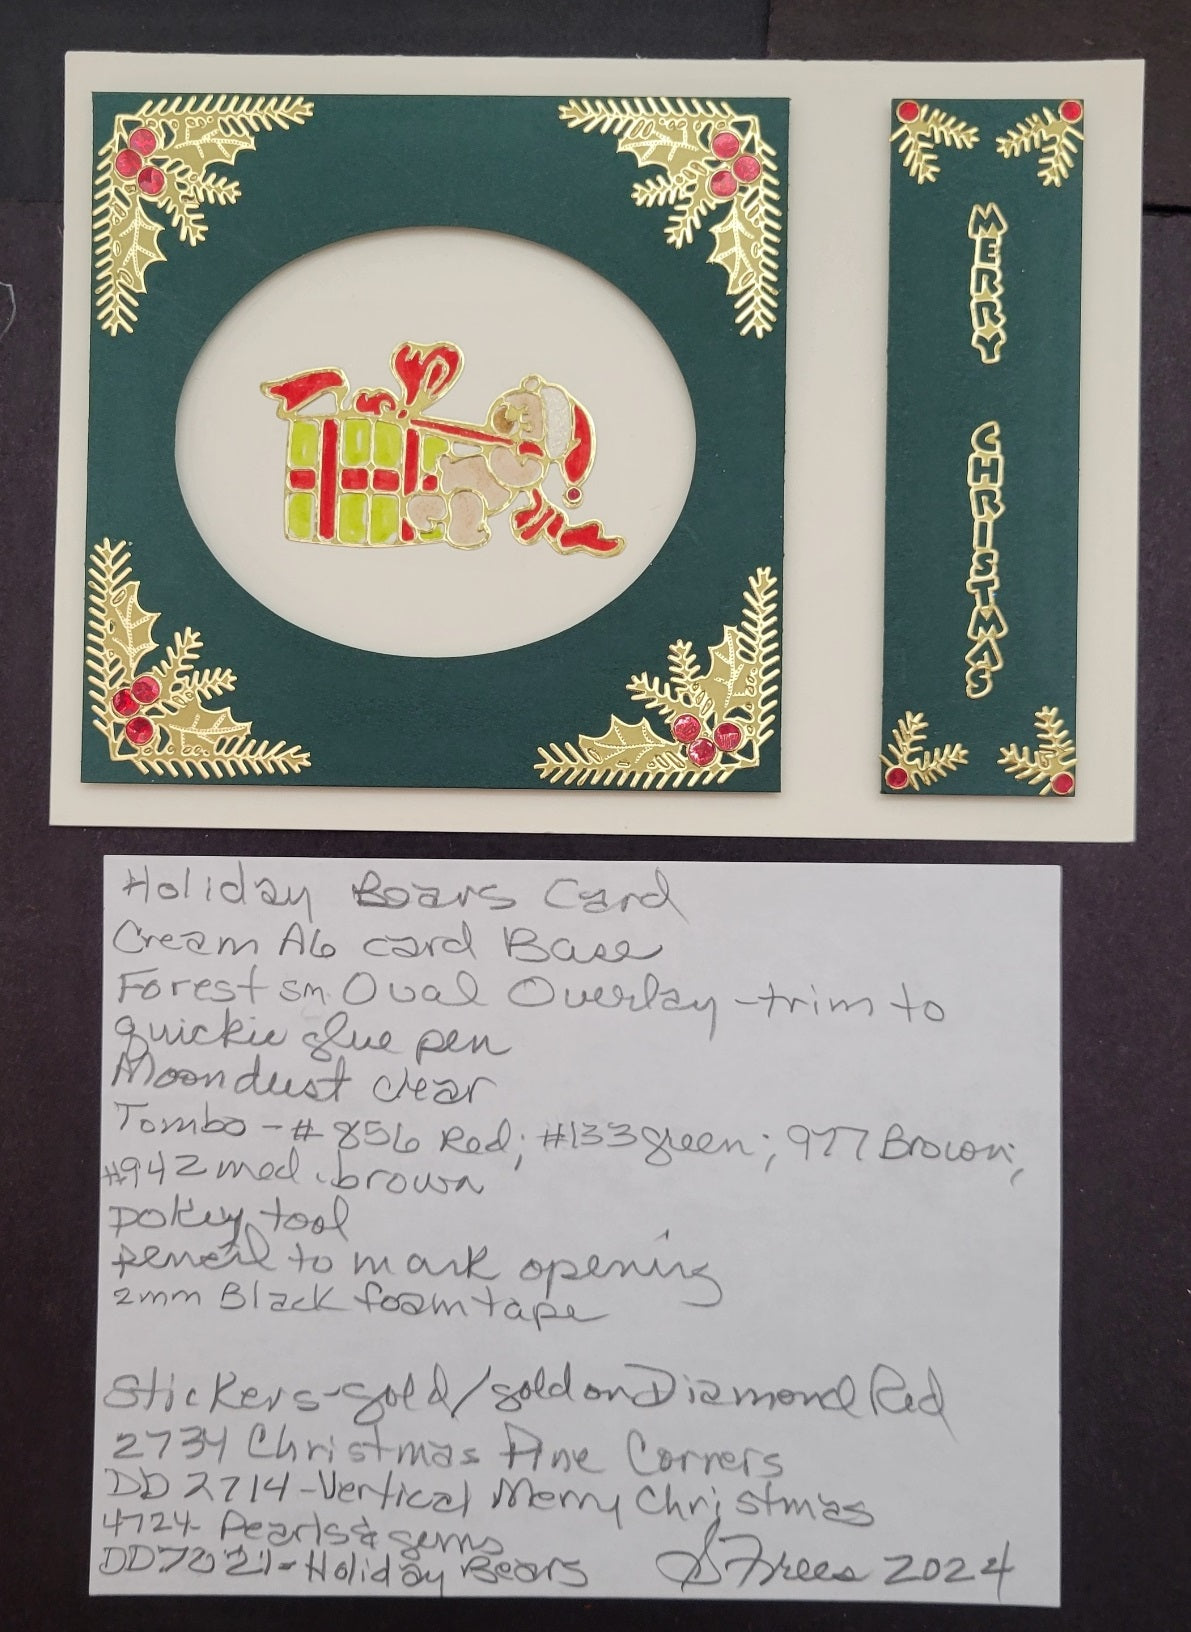 MERRY CHRISTMAS
Holiday Bears Card
Cream A6 card Base
Forest sm. Oval Overlay - trim to
quickie glue pen
Moondust clear
Tombo - # 856 Red; #133 green; 977 Brown;
#942 med. brown
pokey tool
pencil to mark opening
2mm Black foam tape
Stickers - gold/gold on Diamond Red
2734 Christmas Pine Corners
DD 2714 - Vertical Merry Christmas
4724 - Pearls & gems
DD7021 - Holiday Bears
S Frees 2024